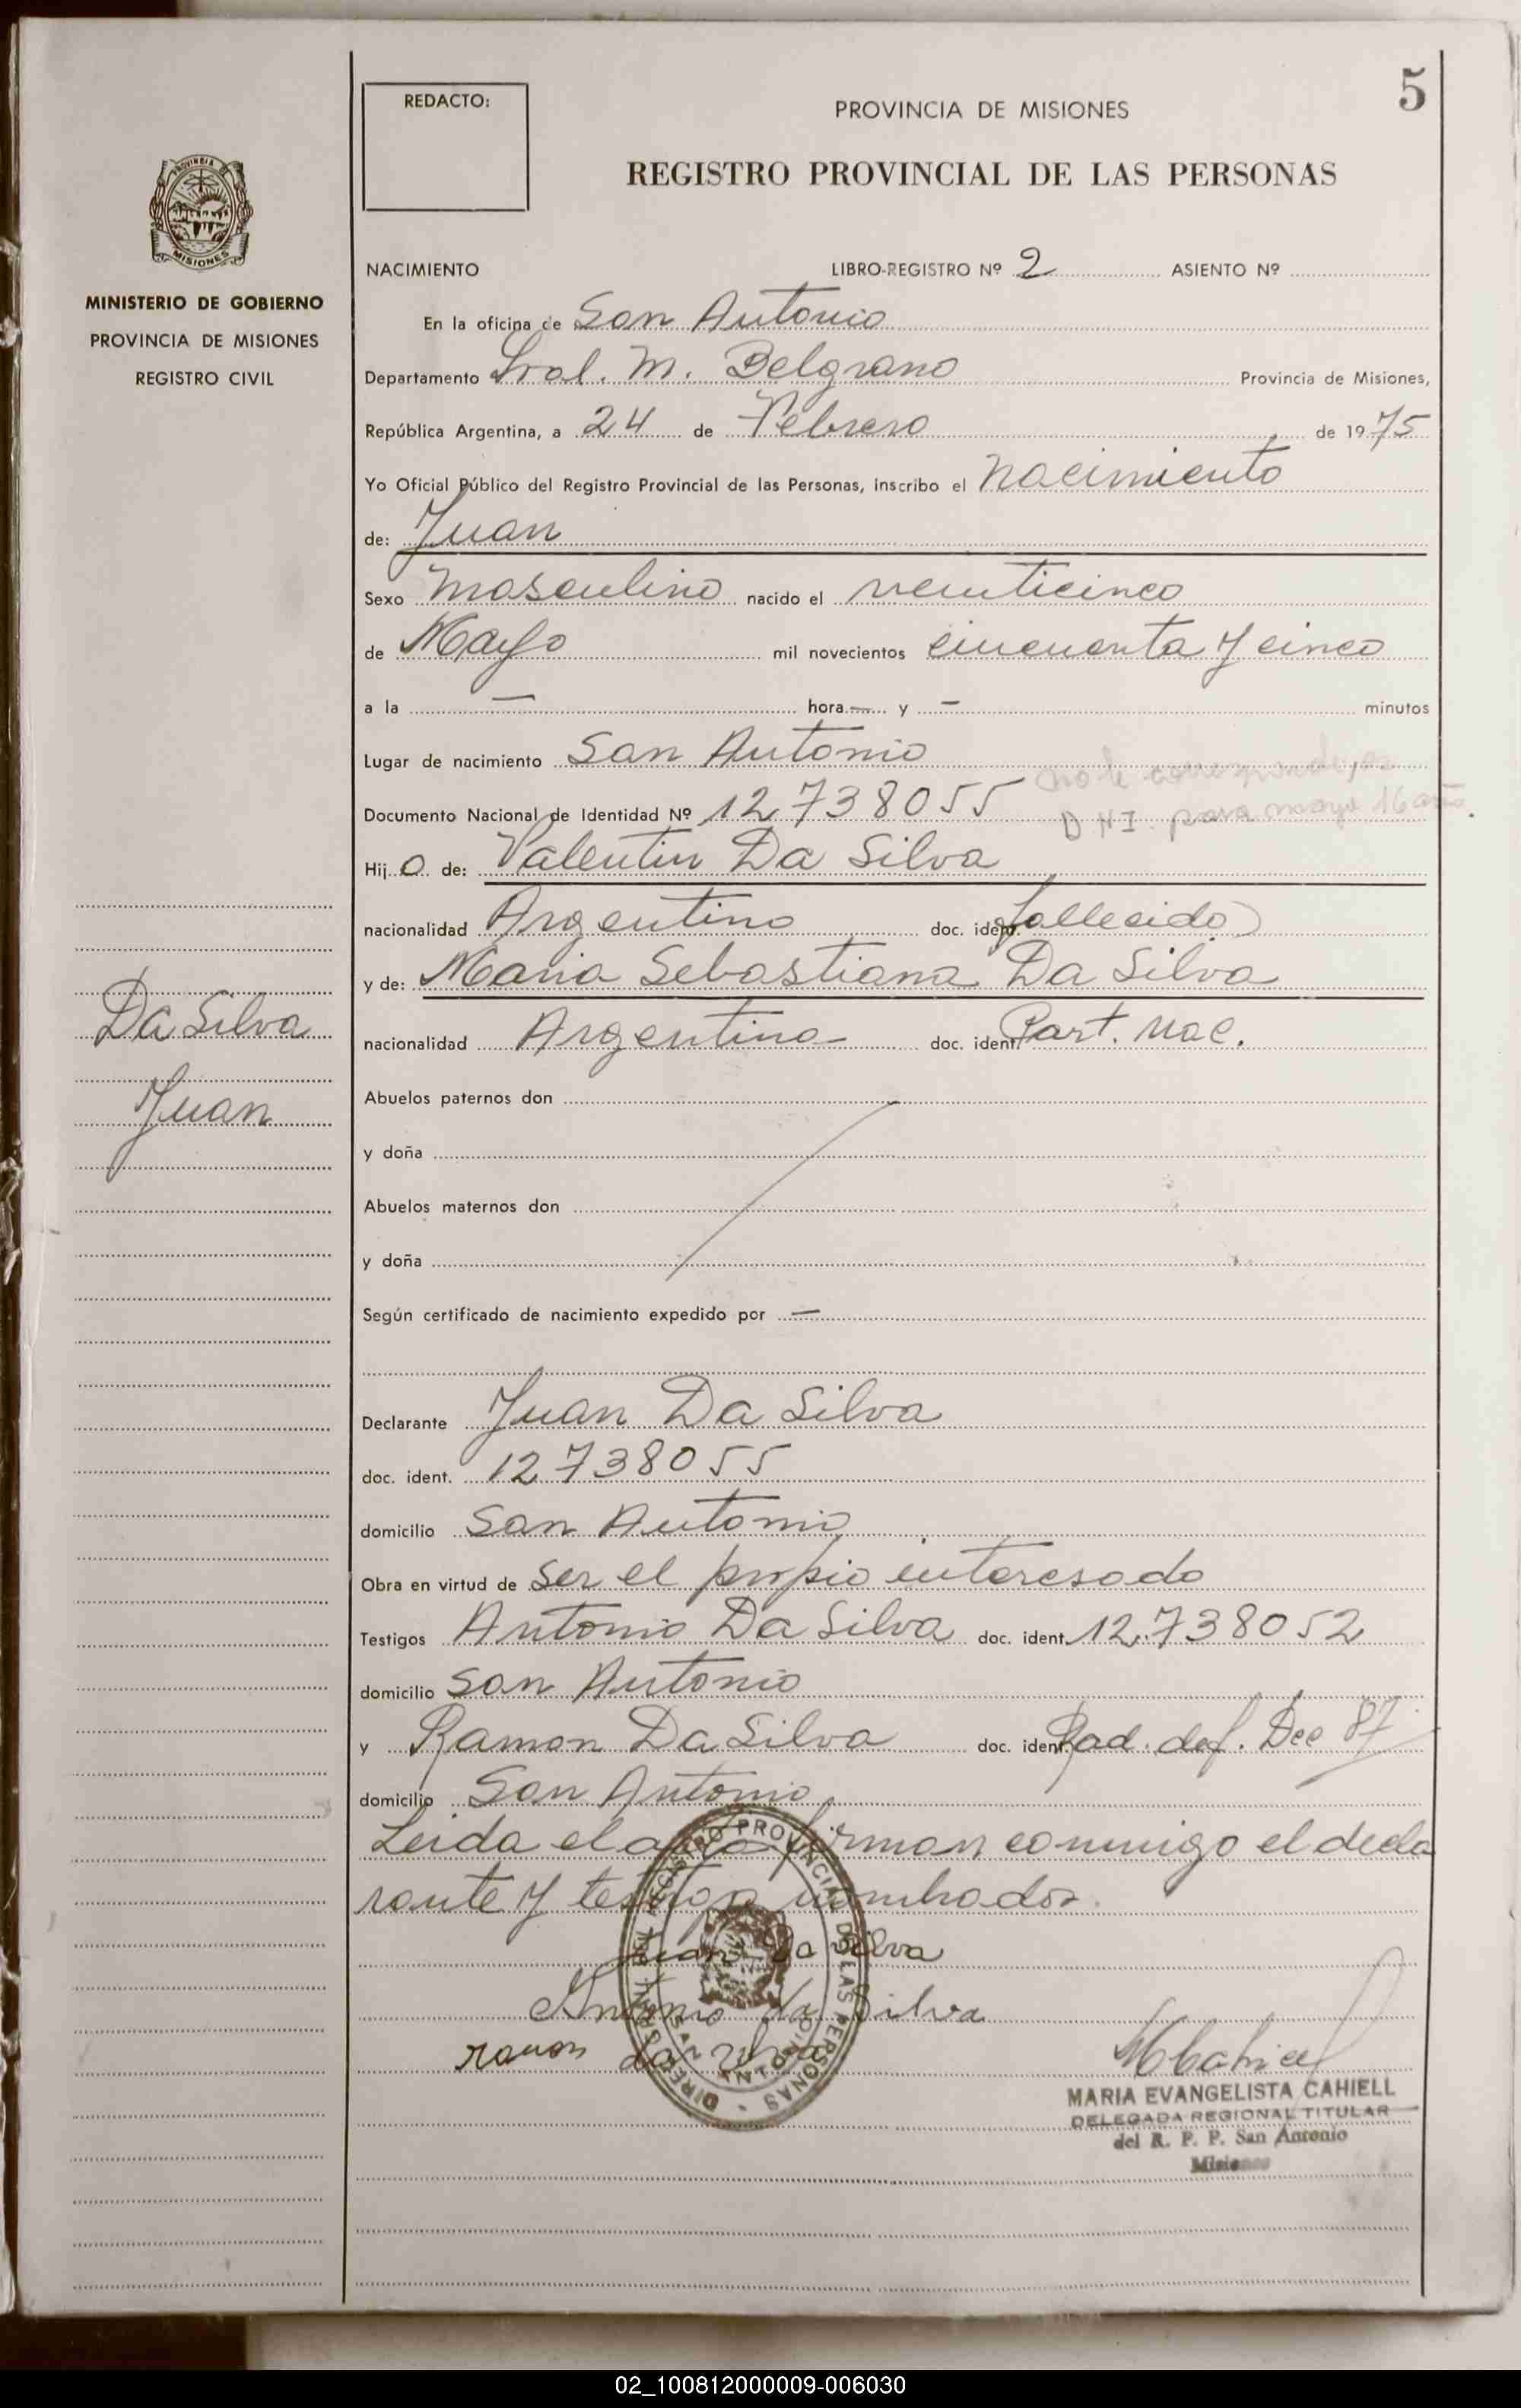 5
REDACTO:
PROVINCIA DE MISIONES
REGISTRO PROVINCIAL DE LAS PERSONAS
PROVINCIA
MISIONES
MINISTERIO DE GOBIERNO
PROVINCIA DE MISIONES
REGISTRO CIVIL
NACIMIENTO LIBRO-REGISTRO Nº 2 ASIENTO Nº
En la oficina de San Antonio
Departamento Gral. M. Belgrano Provincia de Misiones,
República Argentina, a 24 de Febrero de 1975
Yo Oficial Público del Registro Provincial de las Personas, inscribo el nacimiento
de: Juan
Sexo masculino nacido el veinticinco
de Mayo mil novecientos cincuenta y cinco
a la — hora — y — minutos
Lugar de nacimiento San Antonio
no le corresponde, es
Documento Nacional de Identidad Nº 12.738055
D.N.I. para mayor 16 años.
Hijo de: Valentin Da Silva
nacionalidad Argentino doc. ident. fallecido)
y de: Maria Sebastiana Da Silva
nacionalidad Argentina doc. ident. Part. Nac.
Da Silva
Juan
Abuelos paternos don
y doña
Abuelos maternos don
y doña
Según certificado de nacimiento expedido por —
Declarante Juan Da Silva
doc. ident. 12.738055
domicilio San Antonio
Obra en virtud de ser el propio interesado
Testigos Antonio Da Silva doc. ident. 12.738052
domicilio San Antonio
y Ramon Da Silva doc. ident. Rad. def. Dec 87
domicilio San Antonio
Leida el acta firman conmigo el decla
rante y testigos nombrados.
Juan Da Silva
Antonio da Silva
ramon da silva
DIRECCION GRAL DEL REGISTRO PROVINCIAL DE LAS PERSONAS
MARIA EVANGELISTA CAHIELL
DELEGADA REGIONAL TITULAR
del R. P. P. San Antonio
Misiones
02_100812000009-006030